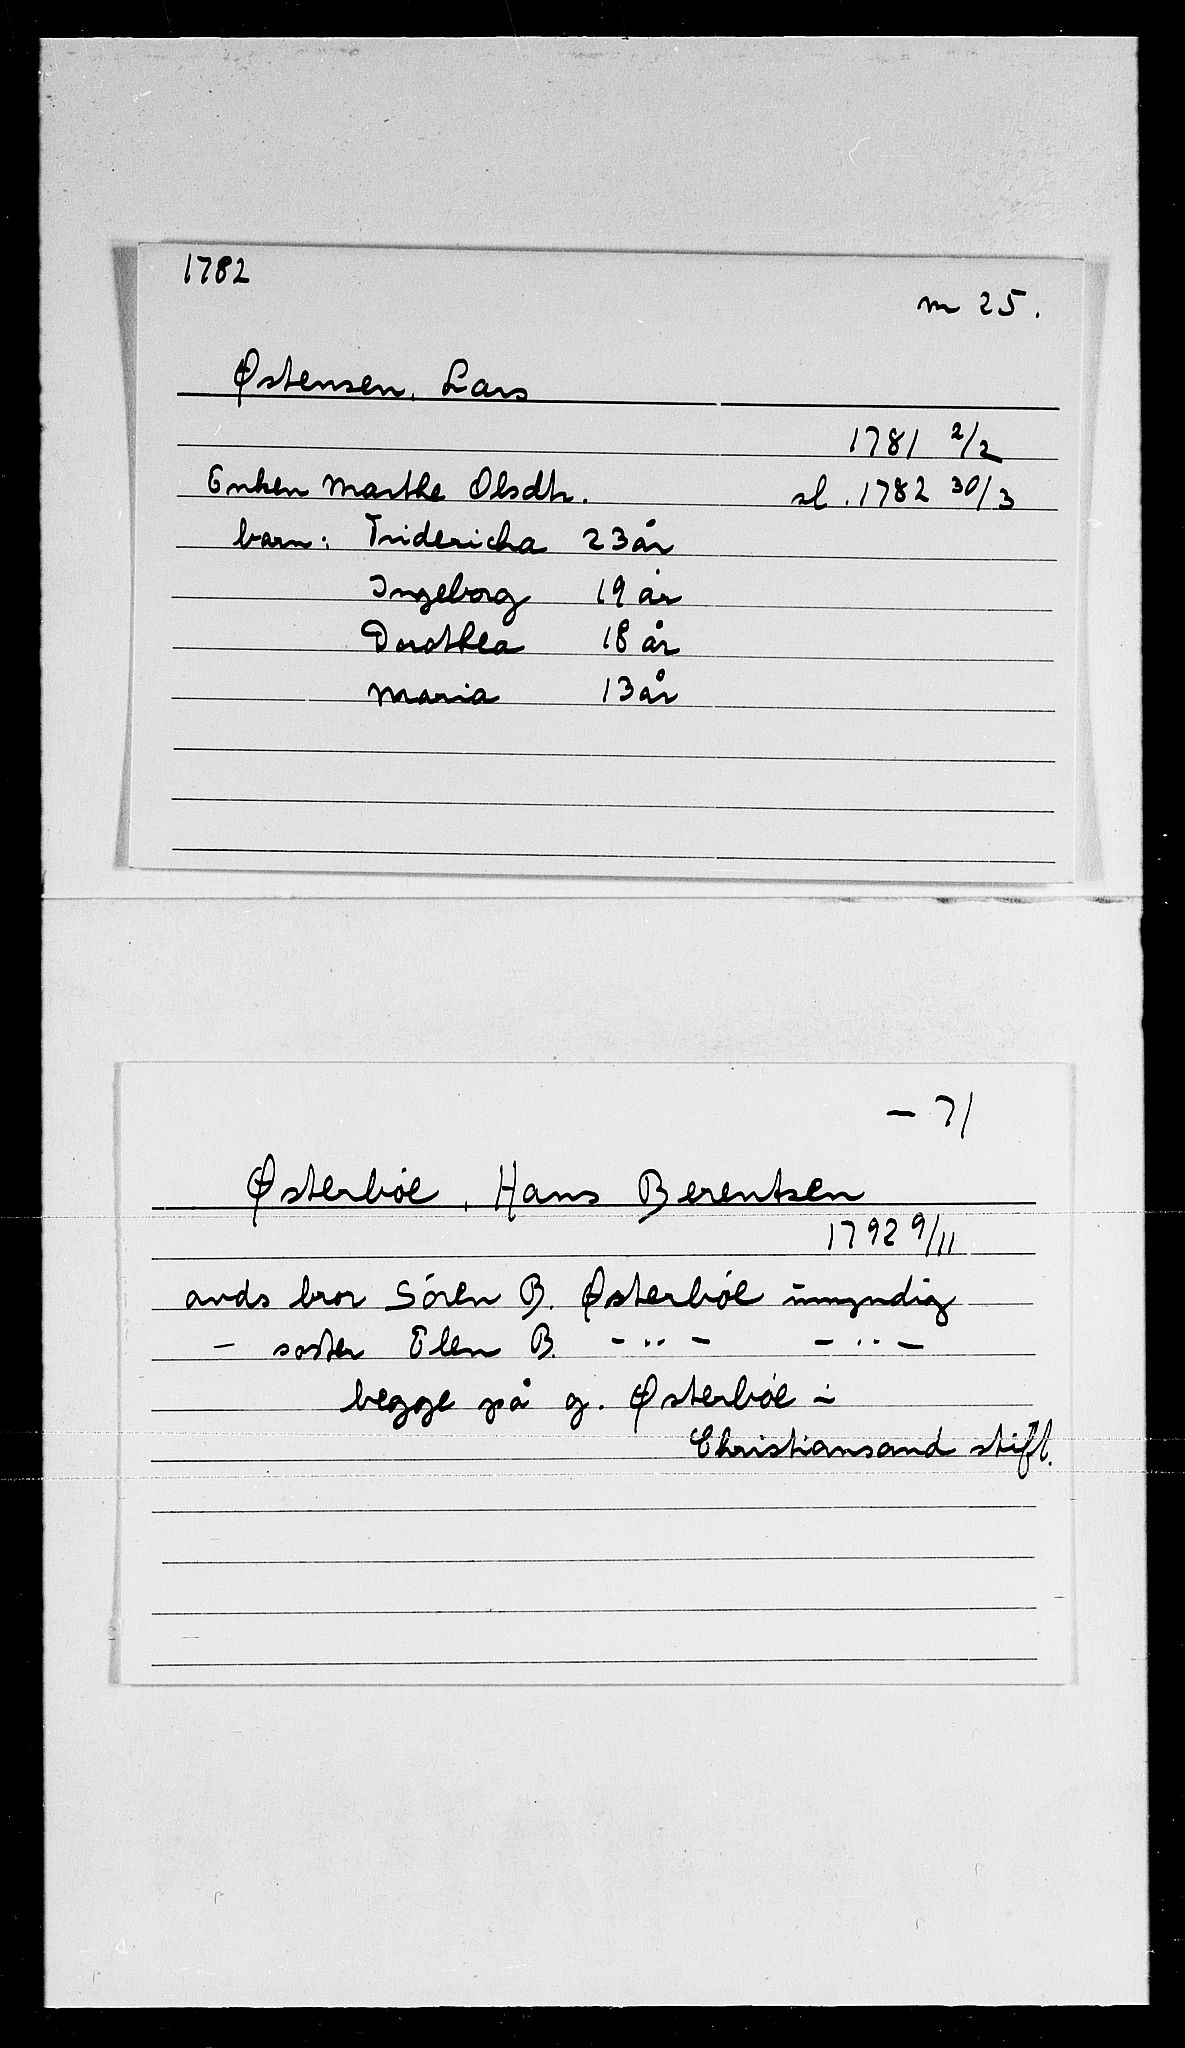 1782
m 25.
Østensen, Lars
1781 2/2
Enken Marthe Olsdtr. sl. 1782 30/3
barn: Fridericha 23 år
Ingeborg 19 år
Dorothea 18 år
Maria 13 år
– 71
Østerbøe, Hans Berentsen
1792 9/11
avds bror Sören B. Østerbøe umyndig
– søster Elen B. – " – – " –
begge på g. Østerbøe i
Christiansand stift.